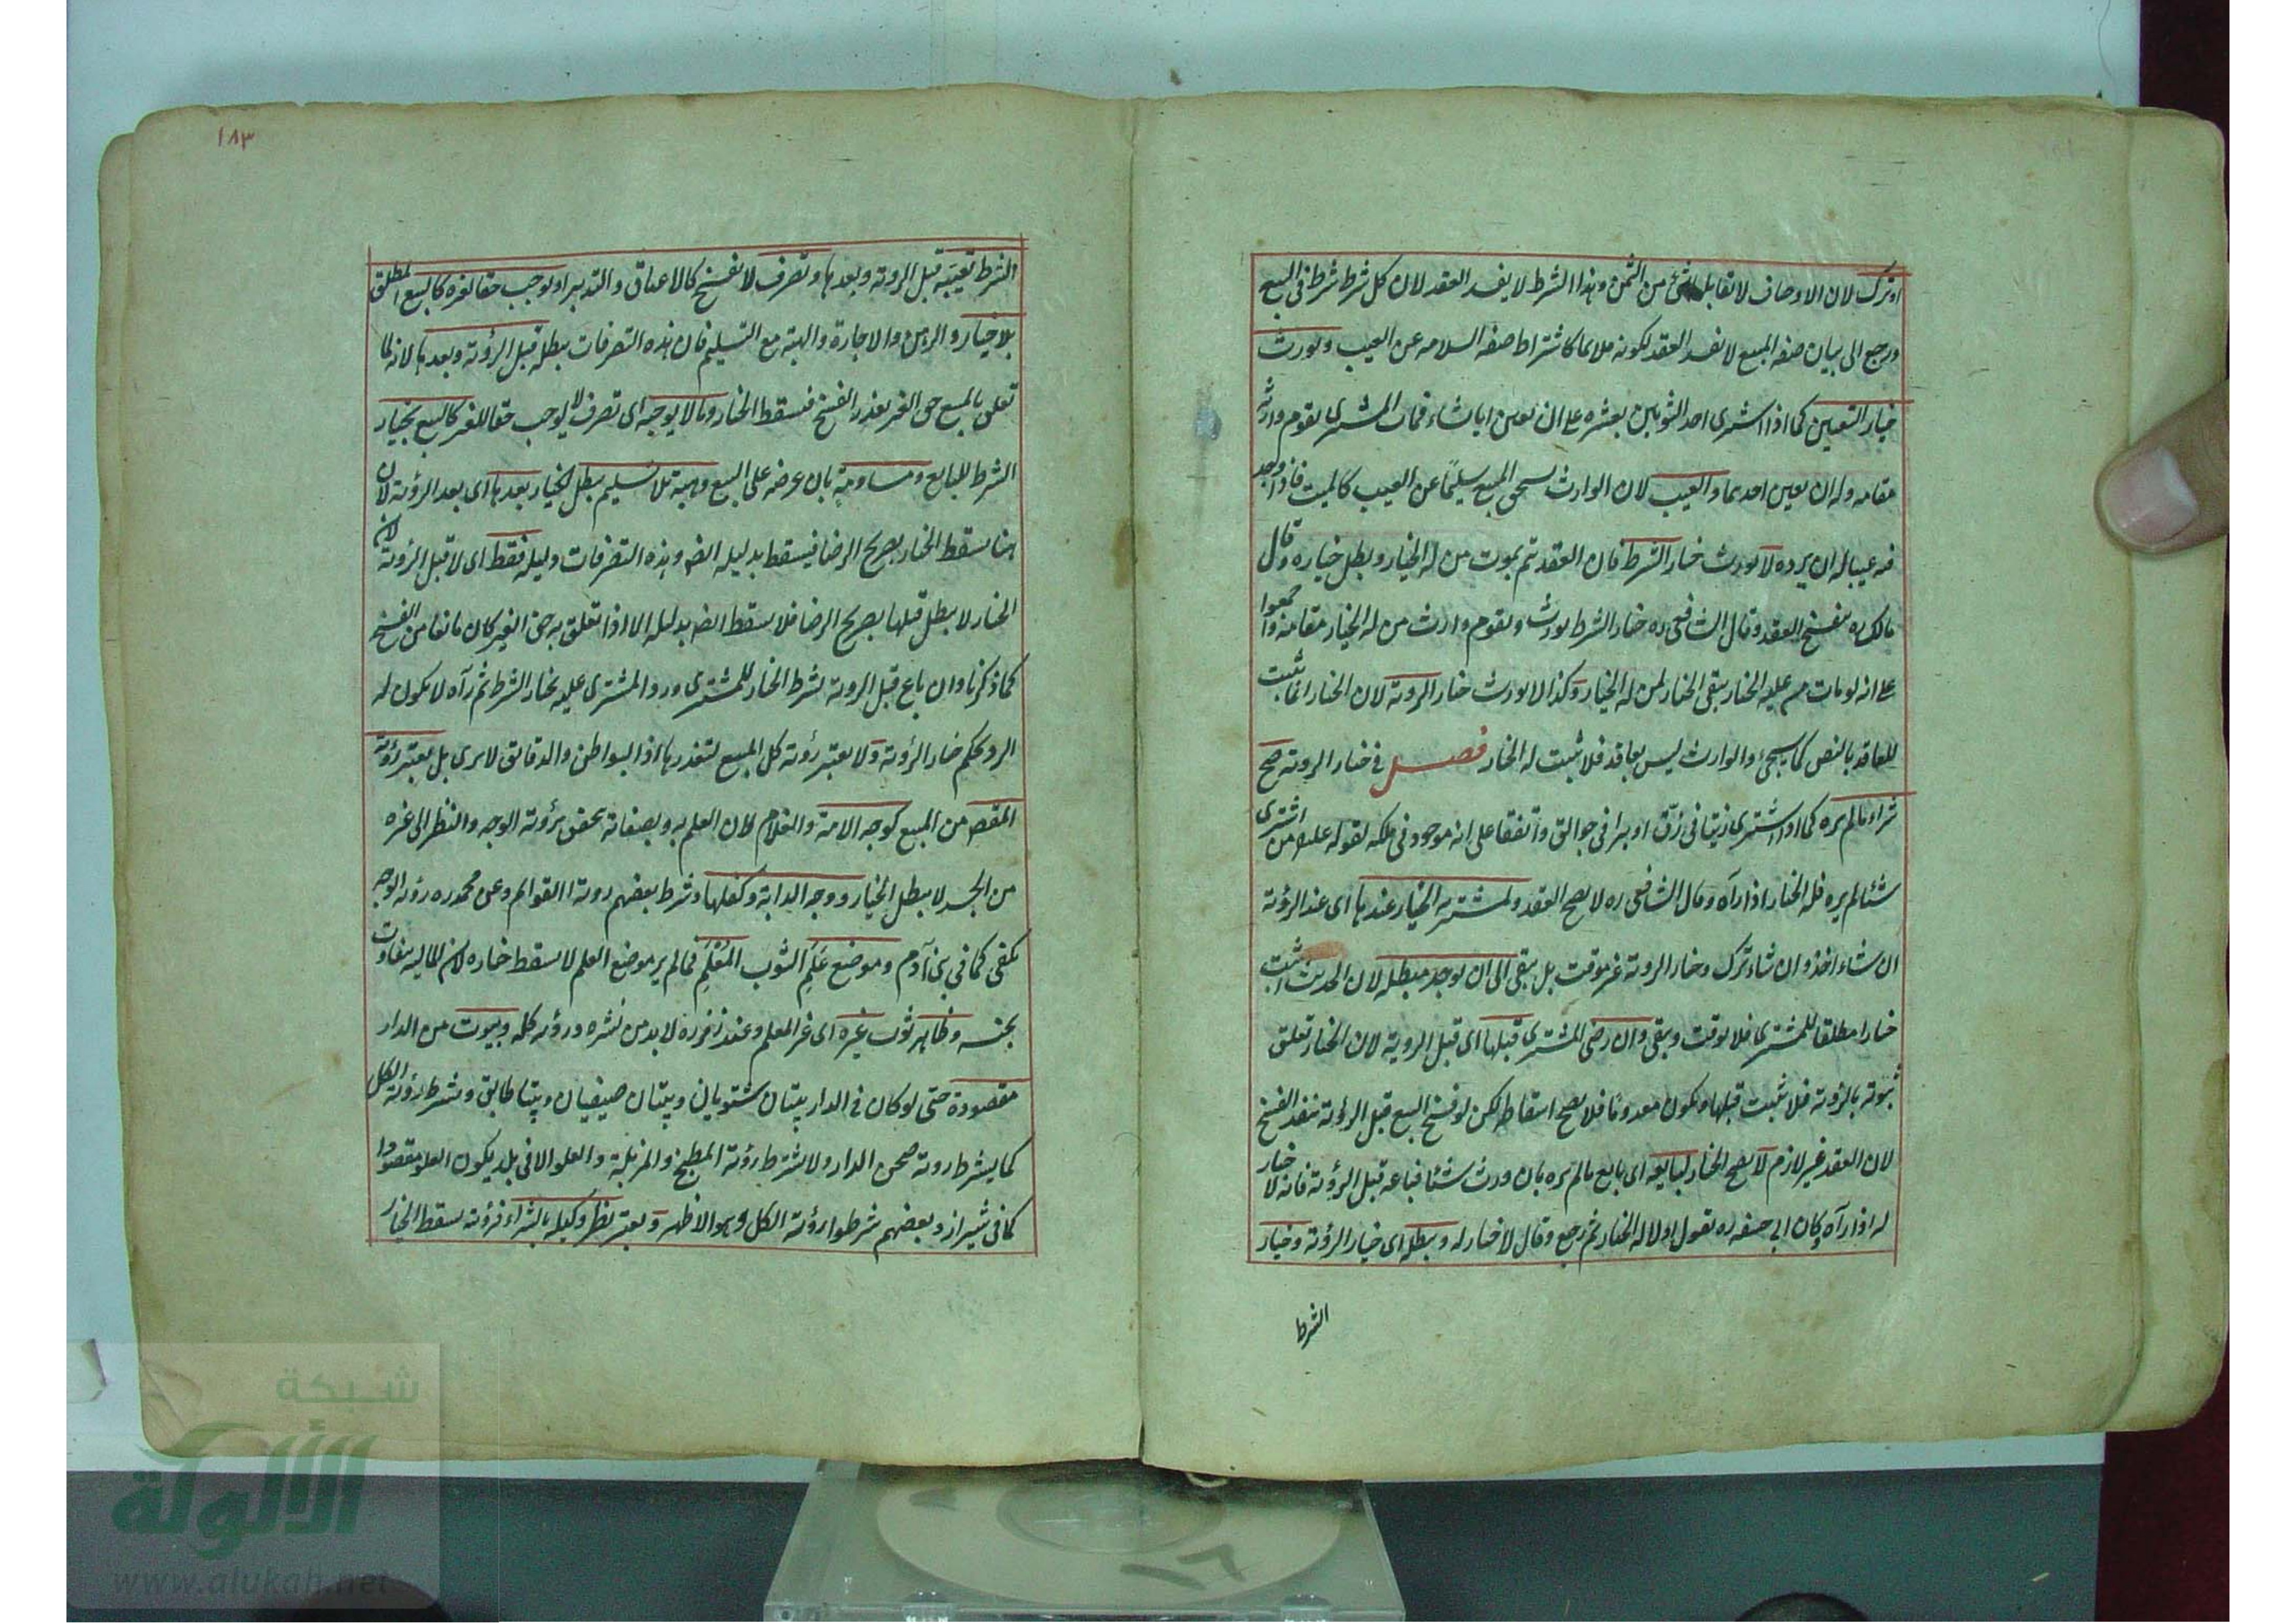 او ترك لان الاوصاف لا تقابلها شئ من الثمن وهذا الشرط لا يفسد العقد لان كل شرط شرط فى البيع
ورجع الى بيان صفة المبيع لا يفسد العقد لكونه ملايما كاشتراط صفة السلامة عن العيب ويورث
خيار التعيين كما اذا اشترى احد الثوبين بعشرة على ان يعين ايا شاء فمات المشترى يقوم وارثه
مقامه وله ان يعين احدهما والعيب لان الوارث يستحق المبيع سليمًا عن العيب كالميت فاذا وجد
فيه عيبا له ان يرده لا يورث خيار الشرط فان العقد تم بموت من له الخيار وبطل خياره وقال
مالك ره ينفسخ العقد وقال الشافعى ره خيار الشرط يورث ويقوم وارث من له الخيار مقامه واجمعوا
على انه لو مات من عليه الخيار يبقى الخيار لمن له الخيار وكذا لا يورث خيار الروية لان الخيار انما يثبت
للعاقد بالنص كما يجئ والوارث ليس بعاقد فلا يثبت له الخيار فصل فى خيار الروية صح
شراء ما لم يره كما اذا اشترى زيتا فى زقّ او برا فى جوالق واتفقا على انه موجود فى ملكه لقوله علم من اشترى
شئا لم يره فله الخيار اذا رآه وقال الشافعى ره لا يصح العقد ولمشتريه الخيار عندها اى عند الرؤية
ان شاء اخذ وان شاء ترك وخيار الروية غير موقت بل يبقى الى ان يوجد مبطله لان الحديث اثبت
خيارا مطلقا للمشترى فلا يوقت ويبقى وان رضى المشترى قبلها اى قبل الروية لان الخيار تعلق
ثبوته بالروية فلا يثبت قبلها ويكون معدوما فلا يصح اسقاطه لكن لو فسخ البيع قبل الرؤية ينفذ الفسخ
لان العقد غير لازم لا يصح الخيار لبايعه اى بايع ما لم يره بان ورث شئا فباعه قبل الرؤية فانه لا خيار
له اذا رآه وكان ابى حنيفه ره يقول اولا له الخيار ثم رجع وقال لا خيار له ويبطله اى خيار الرؤية وخيار
الشرط
١٨٣
الشرط تعيبه قبل الروية وبعدها وتصرف لا يفسخ كالاعتاق والتدبير او يوجب حقا لغيره كالبيع المطلق
بلا خيار والرهن والاجارة والهبة مع التسليم فان هذه التصرفات يبطله قبل الرؤية وبعدها لانه لما
تعلق بالمبيع حق الغير تعذر الفسخ فيسقط الخيار وما لا يوجبه اى تصرف لا يوجب حقا للغير كالبيع بخيار
الشرط للبايع ومساومة بان عرضه على البيع وهبة بلا تسليم يبطل الخيار بعدها اى بعد الرؤية لان
هنا يسقط الخيار بصريح الرضا فيسقط بدليله ايضه وهذه التصرفات دليله فقط اى لا قبل الرؤية لان
الخيار لا يبطل قبلها بصريح الرضا فلا يسقط ايضه بدليله الا اذا تعلق به حق الغير كان مانعا من الفسخ
كما ذكرنا وان باع قبل الروية بشرط الخيار للمشترى ورد المشترى عليه بخيار الشرط ثم رآه لا يكون له
الرد بحكم خيار الرؤية ولا يعتبر رؤية كل المبيع لتعذرها اذ البواطن والدقائق لا يرى بل يعتبر رؤية
المقصد من المبيع كوجه الامة والغلام لان العلم به وبصفاته يحقق برؤية الوجه والنظر الى غيره
من الجسد لا يبطل الخيار ووجه الدابة وكفلها وشرط بعضهم روية القوائم وعن محمد ره رؤية الوجه
يكفى كما فى بنى آدم وموضع عَلَم الثوب المُعْلَم فما لم ير موضع العلم لا يسقط خياره لان المالية يتفاوت
بحسبه وظاهر ثوب غيره اى غير المعلم وعند زفر ره لا بد من نشره ورؤية كله وبيوت من الدار
مقصودة حتى لو كان فى الدار بيتان شتويان وبيتان صيفيان وبيتا طابق وشرط رؤية الكل
كما يشترط روية صحن الدار ولا يشترط رؤية المطبخ والمزبلة والعلو الا فى بلد يكون العلو مقصودا
كما فى شيراز وبعضهم شرطوا رؤية الكل وهو الاظهر ويعتبر نظر وكيله بالشراء فرؤيته يسقط الخيار
شبكة
الألوكة
www.alukah.net